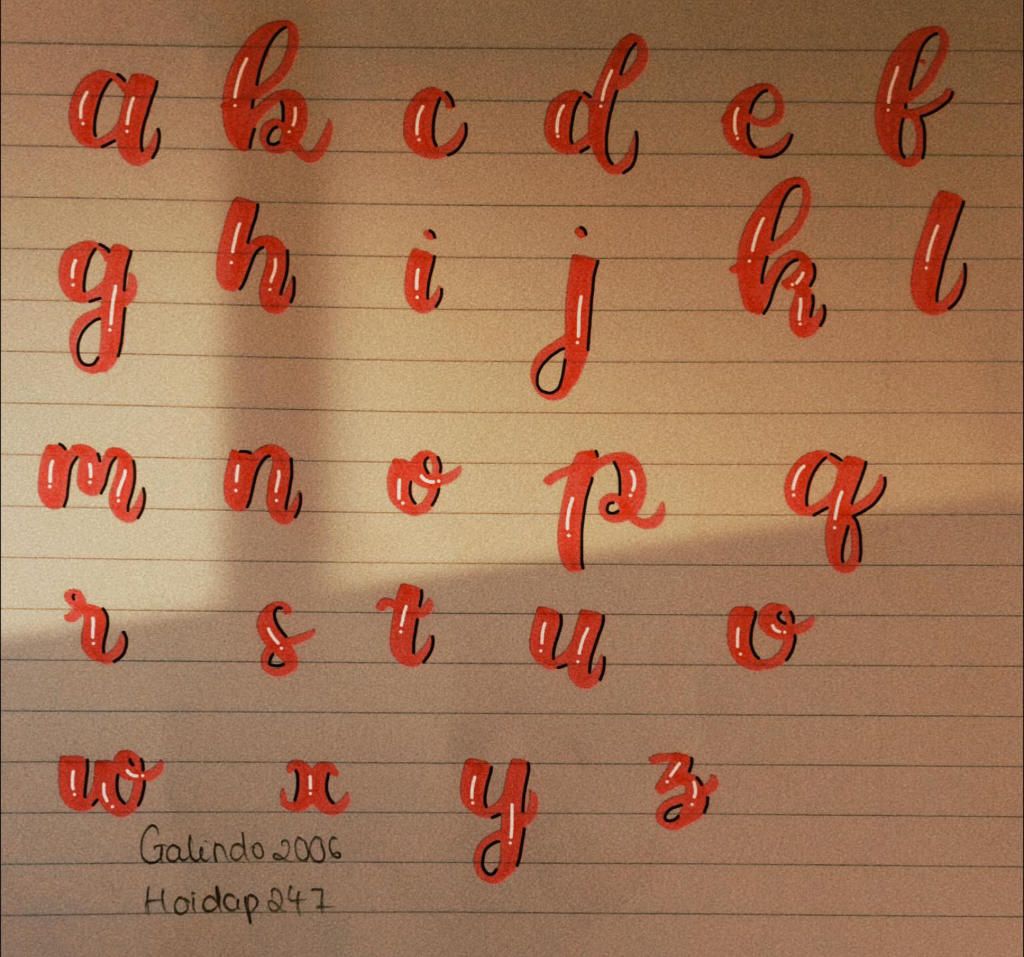 a b c d e f
g h i j k l
m n o p q
r s t u v
w x y z
Galindo2006
Hoidap247